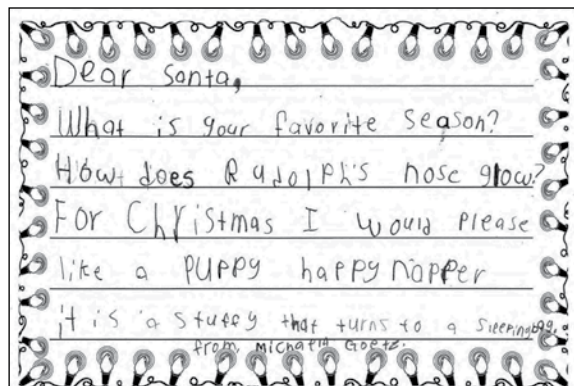 Dear Santa,
What is your favorite season?
How does Rudolph's nose glow?
For Christmas I would please
like a puppy happy napper
it is a stuffy that turns to a sleepingbag.
from Goetz.